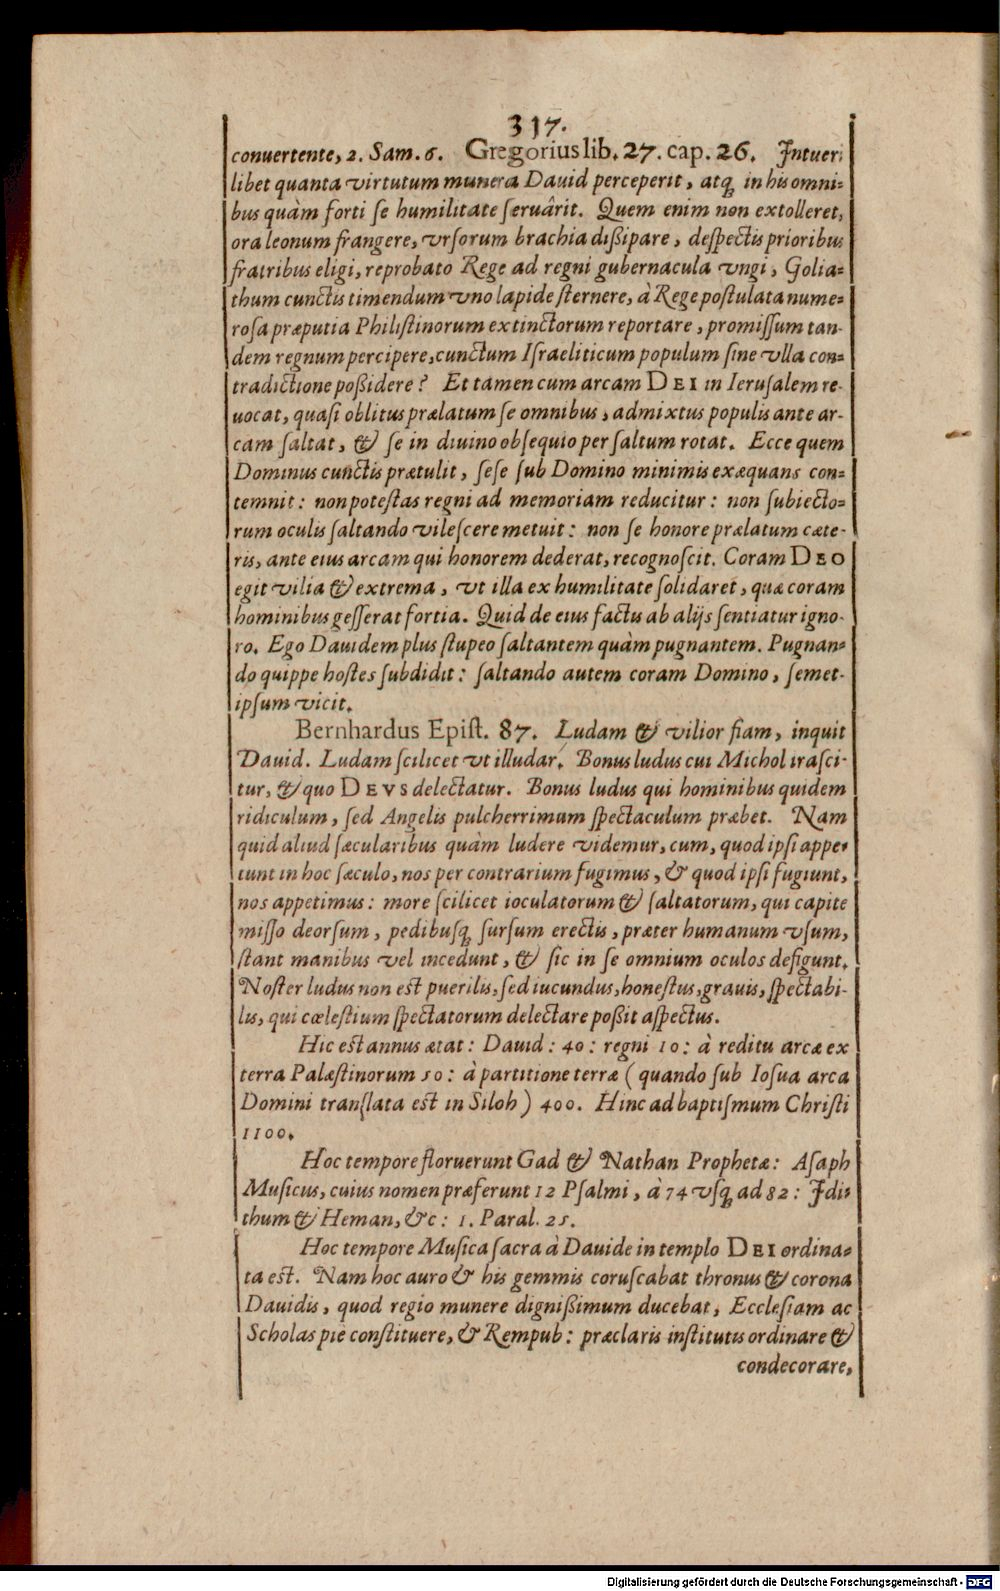 317.
conuertente, 2. Sam. 6. Gregorius lib. 27. cap. 26. Intueri
libet quanta virtutum munera Dauid perceperit, atq́ in his omni-
bus quàm forti se humilitate seruârit. Quem enim non extolleret,
ora leonum frangere, vrsorum brachia dißipare, despectis prioribus
fratribus eligi, reprobato Rege ad regni gubernacula vngi, Golia-
thum cunctis timendum vno lapide sternere, à Rege postulata nume-
rosa præputia Philistinorum extinctorum reportare, promissum tan-
dem regnum percipere, cunctum Israeliticum populum sine vlla con-
tradictione poßidere? Et tamen cum arcam DEI in Ierusalem re-
uocat, quasi oblitus prælatum se omnibus, admixtus populis ante ar-
cam saltat, & se in diuino obsequio per saltum rotat. Ecce quem
Dominus cunctis prætulit, sese sub Domino minimis exæquans con-
temnit: non potestas regni ad memoriam reducitur: non subiecto-
rum oculis saltando vilescere metuit: non se honore prælatum cæte-
ris, ante eius arcam qui honorem dederat, recognoscit. Coram DEO
egit vilia & extrema, vt illa ex humilitate solidaret, quæ coram
hominibus gesserat fortia. Quid de eius factis ab alijs sentiatur igno-
ro. Ego Dauidem plus stupeo saltantem quàm pugnantem. Pugnan-
do quippe hostes subdidit: saltando autem coram Domino, semet-
ipsum vicit.
Bernhardus Epist. 87. Ludam & vilior fiam, inquit
Dauid. Ludam scilicet vt illudar. Bonus ludus cui Michol irasci-
tur, & quo DEVS delectatur. Bonus ludus qui hominibus quidem
ridiculum, sed Angelis pulcherrimum spectaculum præbet. Nam
quid aliud sæcularibus quàm ludere videmur, cum, quod ipsi appe-
tunt in hoc sæculo, nos per contrarium fugimus, & quod ipsi fugiunt,
nos appetimus: more scilicet ioculatorum & saltatorum, qui capite
misso deorsum, pedibusq́ sursum erectis, præter humanum vsum,
stant manibus vel incedunt, & sic in se omnium oculos defigunt.
Noster ludus non est puerilis, sed iucundus, honestus, grauis, spectabi-
lis, qui cœlestium spectatorum delectare poßit aspectus.
Hic est annus ætat: Dauid: 40: regni 10: à reditu arcæ ex
terra Palæstinorum 50: à partitione terræ (quando sub Iosua arca
Domini translata est in Siloh) 400. Hinc ad baptismum Christi
1100.
Hoc tempore floruerunt Gad & Nathan Prophetæ: Asaph
Musicus, cuius nomen præferunt 12 Psalmi, à 74 vsq́ ad 82: Idi-
thum & Heman, &c: 1. Paral. 25.
Hoc tempore Musica sacra à Dauide in templo DEI ordina-
ta est. Nam hoc auro & his gemmis coruscabat thronus & corona
Dauidis, quod regio munere dignißimum ducebat, Ecclesiam ac
Scholas pie constituere, & Rempub: præclaris institutis ordinare &
condecorare,
Digitalisierung gefördert durch die Deutsche Forschungsgemeinschaft - DFG